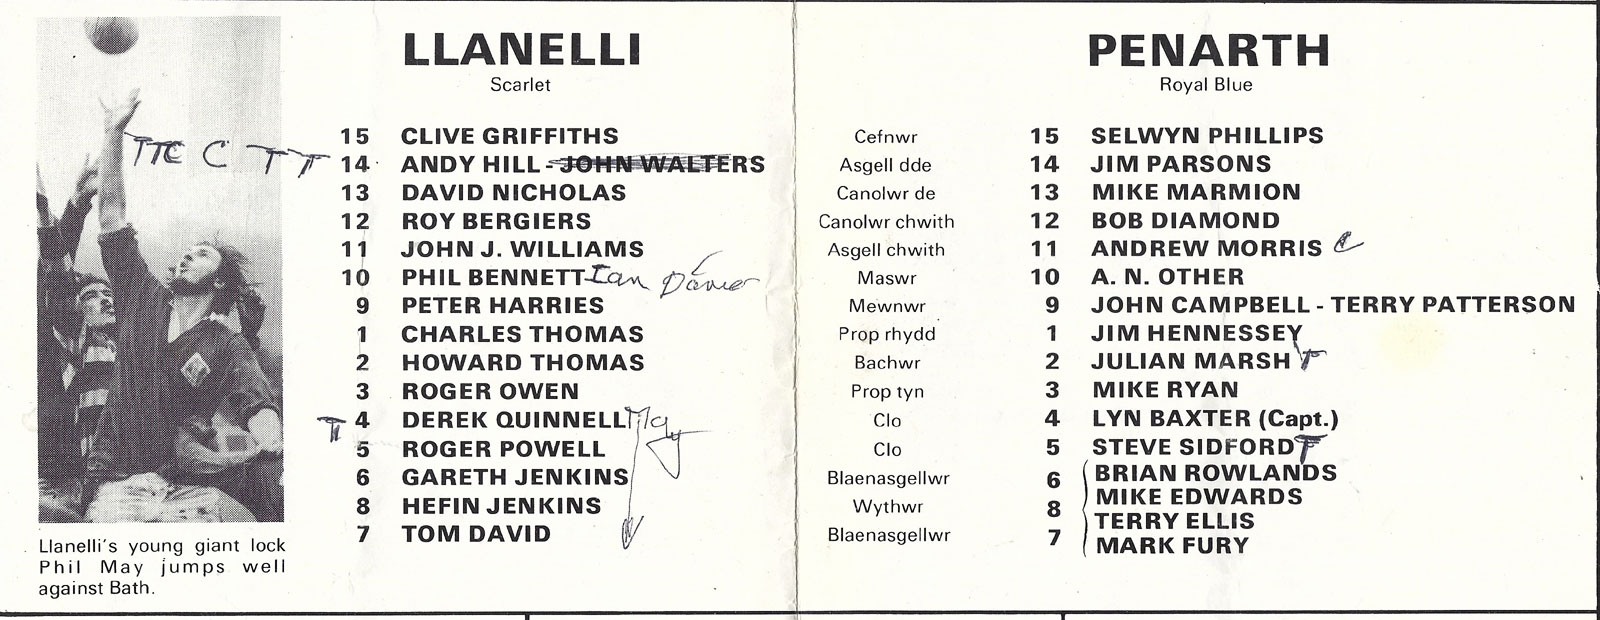 LLANELLI
Scarlet
15 CLIVE GRIFFITHS
TTC C T T 14 ANDY HILL - JOHN WALTERS
13 DAVID NICHOLAS
12 ROY BERGIERS
11 JOHN J. WILLIAMS
10 PHIL BENNETT Ian
9 PETER HARRIES
1 CHARLES THOMAS
2 HOWARD THOMAS
3 ROGER OWEN
T 4 DEREK QUINNELL May
5 ROGER POWELL
6 GARETH JENKINS
8 HEFIN JENKINS
7 TOM DAVID
Llanelli's young giant lock
Phil May jumps well
against Bath.
PENARTH
Royal Blue
Cefnwr 15 SELWYN PHILLIPS
Asgell dde 14 JIM PARSONS
Canolwr de 13 MIKE MARMION
Canolwr chwith 12 BOB DIAMOND
Asgell chwith 11 ANDREW MORRIS C
Maswr 10 A. N. OTHER
Mewnwr 9 JOHN CAMPBELL - TERRY PATTERSON
Prop rhydd 1 JIM HENNESSEY
Bachwr 2 JULIAN MARSH T
Prop tyn 3 MIKE RYAN
Clo 4 LYN BAXTER (Capt.)
Clo 5 STEVE SIDFORD T
Blaenasgellwr 6 BRIAN ROWLANDS
MIKE EDWARDS
Wythwr 8
TERRY ELLIS
Blaenasgellwr 7 MARK FURY